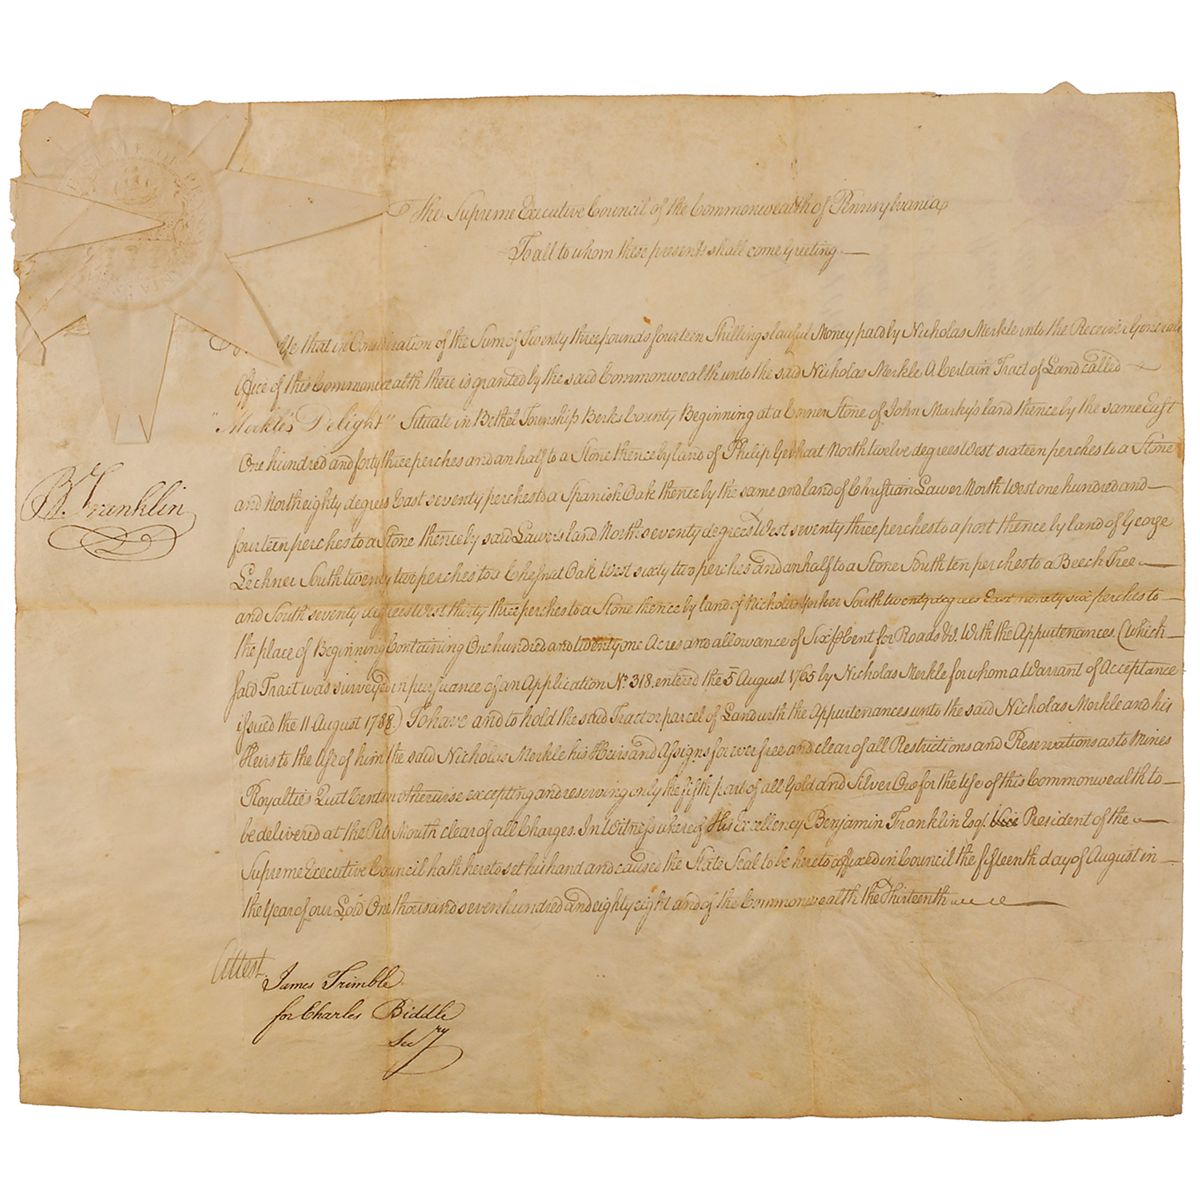 STATE OF PE
The Supreme Executive Council of the Commonwealth of Pennsylvania
To all to whom these presents shall come Greeting
Ye that in Consideration of the Sum of Twenty three pounds fourteen Shillings lawful Money paid by Nicholas Merkle into the Receiver General's
Office of this Commonwealth there is granted by the said Commonwealth unto the said Nicholas Merkle A Certain Tract of Land called
"Merkle's Delight" Situate in Bethel Township Berks County Beginning at a Corner Stone of John Marky's land thence by the same East
One hundred and forty three perches and an half to a Stone thence by land of Philip Gebhart North twelve degrees West sixteen perches to a Stone
and North eighty degrees East seventy perches to a Spanish Oak thence by the same and land of Christian Lawer North West one hundred and
fourteen perches to a Stone thence by said Lawers land North seventy degrees West seventy three perches to a post thence by land of George
Lechner South twenty two perches to a Chesnut Oak West sixty two perches and an half to a Stone South ten perches to a Beech Tree
and South seventy degrees West thirty three perches to a Stone thence by land of Nicholas South twenty degrees East ninety six perches to
the place of Beginning Containing One hundred and twenty one Acres and allowance of Six pCent for Roads &c. With the Appurtenances (which
said Tract was surveyed in pursuance of an Application No. 318. entered the 5 August 1765 by Nicholas Merkle for whom a Warrant of Acceptance
issued the 11 August 1788) To have and to hold the said Tract or parcel of Land with the Appurtenances unto the said Nicholas Merkle and his
Heirs to the Use of him the said Nicholas Merkle his Heirs and Assigns forever free and clear of all Restrictions and Reservations as to Mines
Royalties Quit Rents or otherwise excepting and reserving only the fifth part of all Gold and Silver Ore for the Use of this Commonwealth to
be delivered at the Pits Mouth clear of all Charges. In Witness whereof His Excellency Benjamin Franklin Esqr. Vice President of the
Supreme Executive Council hath hereto set his hand and caused the State Seal to be hereto affixed in Council the fifteenth day of August in
the Year of our Lord One thousand seven hundred and eighty eight and of the Commonwealth the Thirteenth
B. Franklin
Attest.
James Trimble
for Charles Biddle
Secry